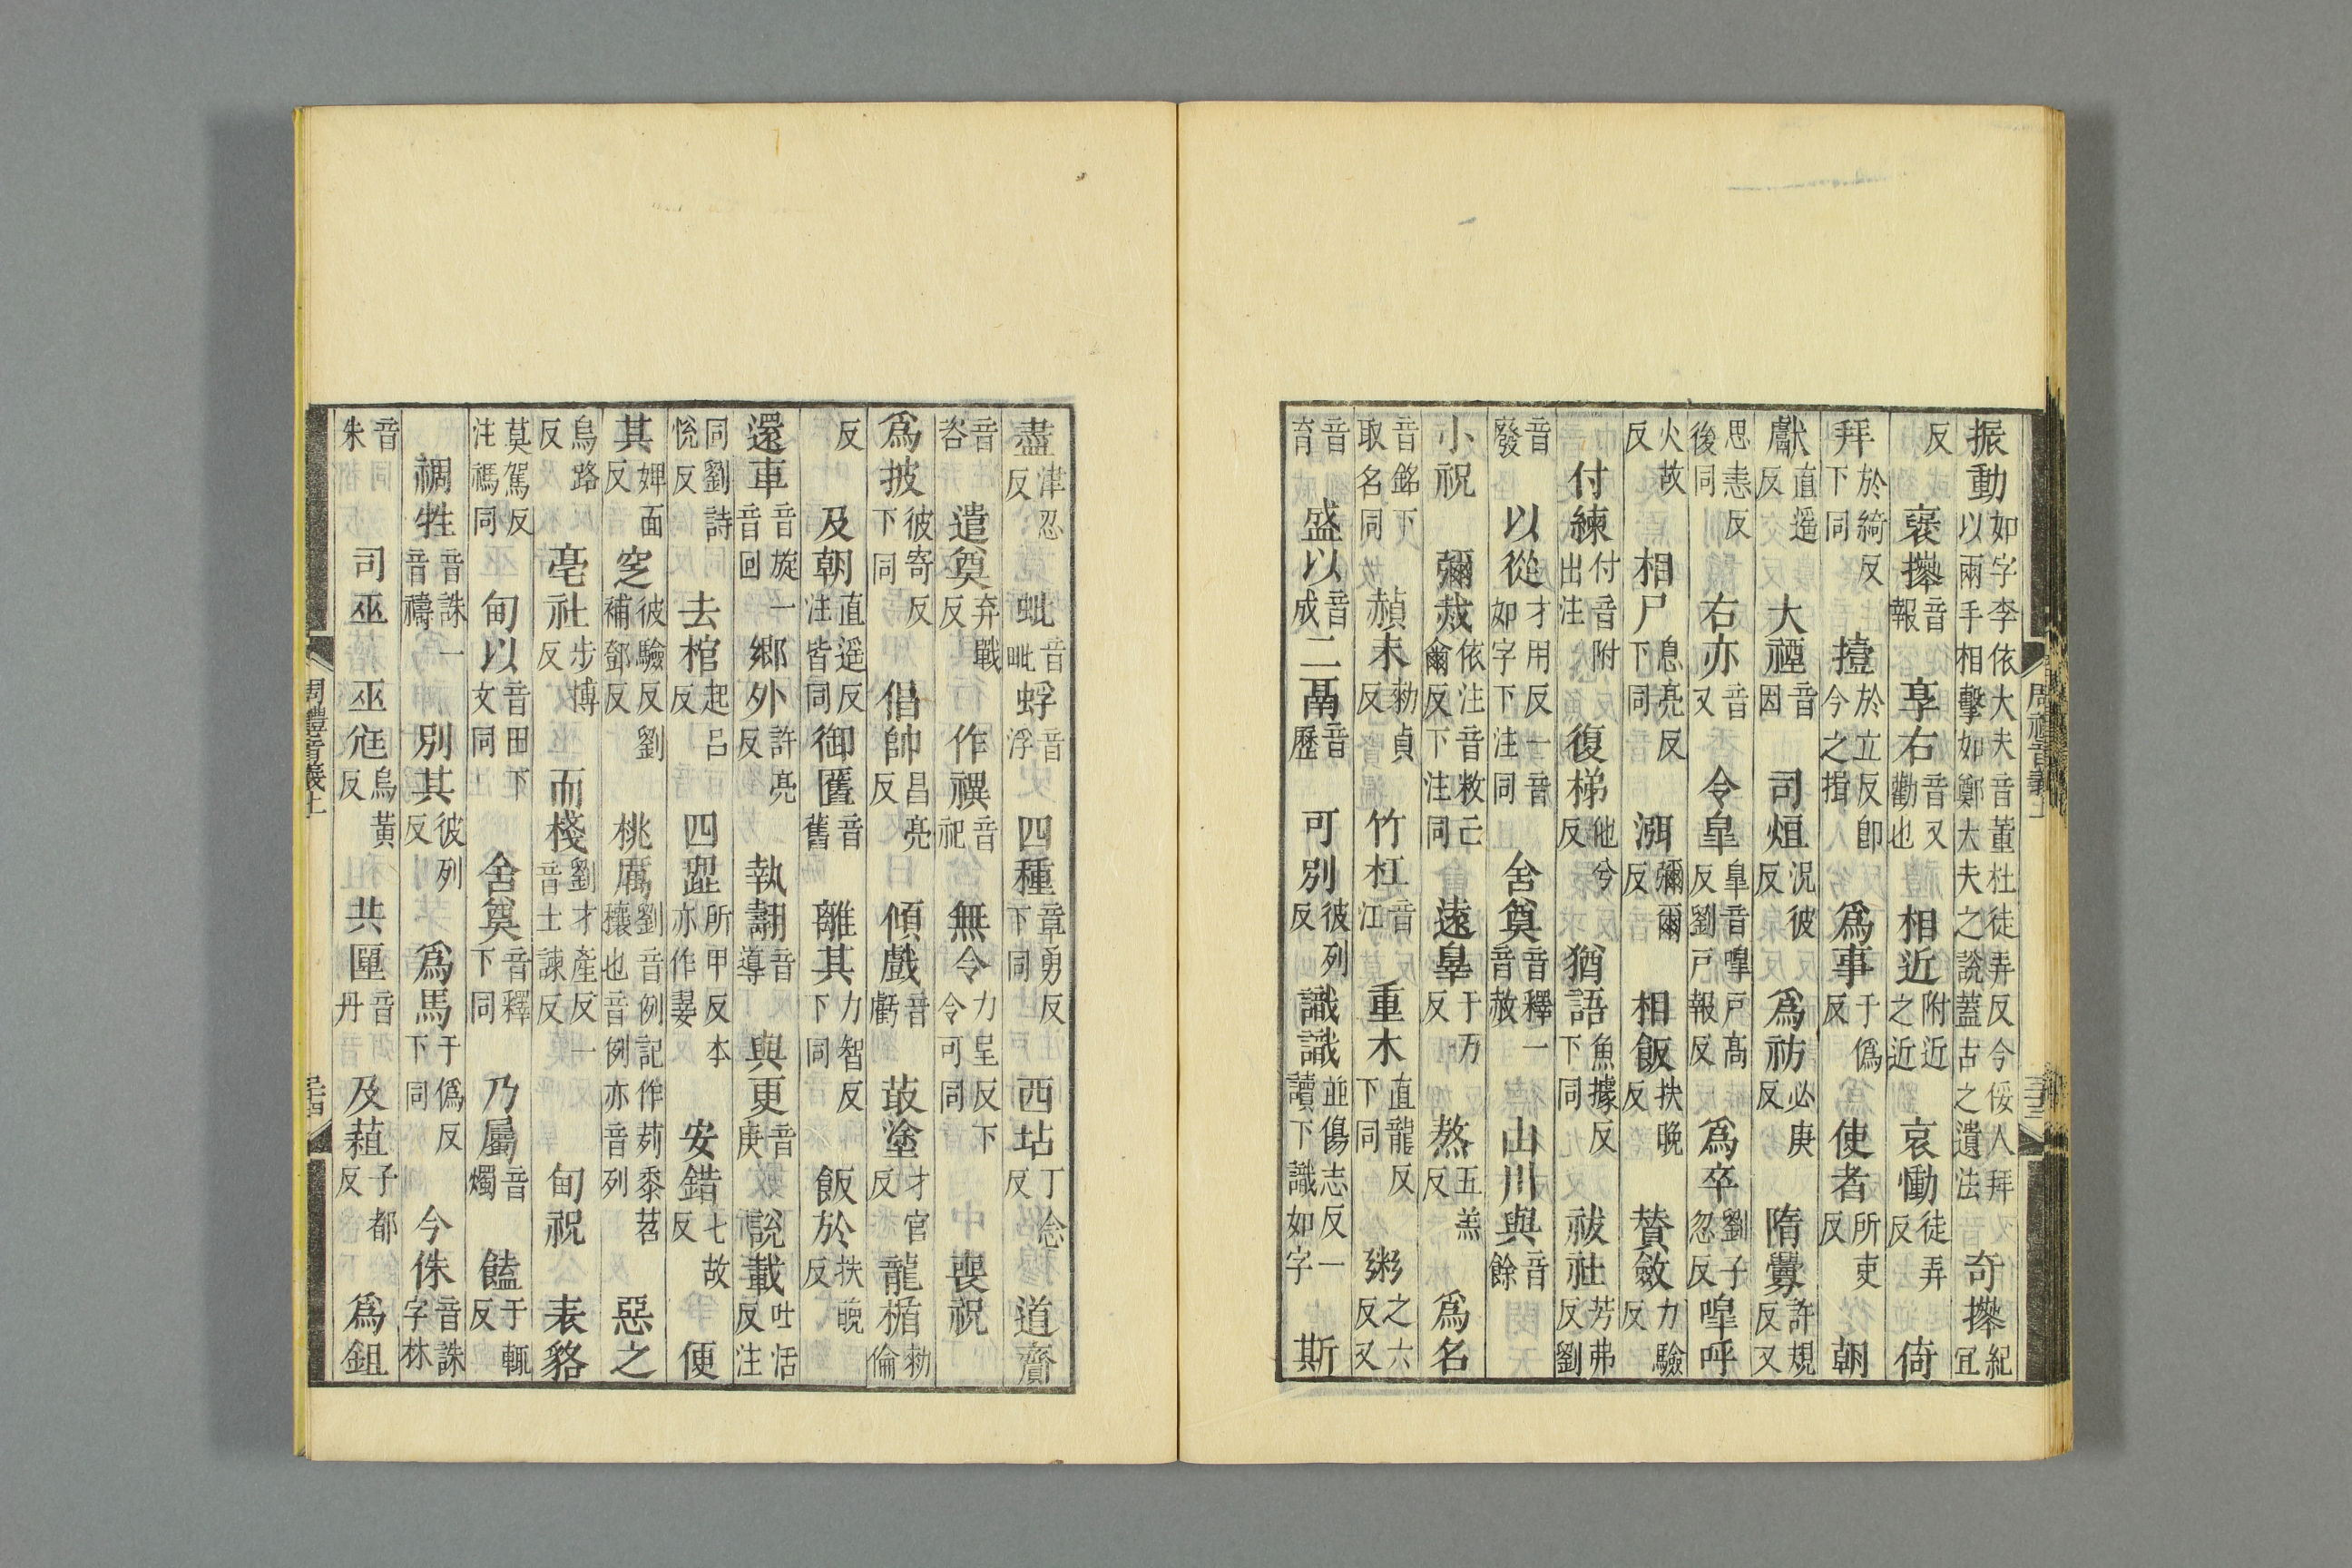 振動如字李依大夫音董杜徒弄反今倭人拜以兩手相擊如鄭大夫之說蓋古之遺法奇𢷎紀宜
反襃𢷎音報享右音又勸也相近附近之近哀慟徒弄反倚
拜於綺反下同撎於立反即今之揖爲事于僞反使者所吏反朝
獻直遥反大禋音因司烜況彼反爲祊必庚反隋釁許規反又
思恚反後同右亦音又令臯臯音嘷戶髙反劉戸報反爲卒劉子忽反嘷呼
火故反相尸息亮反下同渳彌爾反相飯扶晚反贊斂力驗反
付練付音附出注復梯他兮反猶語魚據反下同祓社芳弗反劉
音廢以從才用反一音如字下注同舍奠音釋一音赦山川與音餘
小祝彌烖依注音敉亡爾反下注同遠辠于万反熬五羔反爲名
音銘下取名同赬末勑貞反竹杠音江重木直龍反下同粥之六反又
音育盛以音成二鬲音歷可別彼列反識識並傷志反一讀下識如字斯
盡津忍反蚍音毗蜉音浮四種章勇反下同西坫丁念反道齎
音咨遣奠弃戰反作禩音祀無令力呈反下令可同喪祝
爲披彼寄反下同倡帥昌亮反傾戲音虧菆塗才官反龍楯勑倫
反及朝直遥反注皆同御匶音舊離其力智反下同飯於扶晚反
還車音旋一音回鄉外許亮反執翿音導與更音庚說載吐活反注
同劉詩悅反去棺起吕反四歰所甲反本亦作翣安錯七故反便
其婢面反窆彼驗反劉補鄧反桃厲劉音例記作茢黍苕穰也音例亦音列惡之
烏路反亳社步博反而棧劉才產反一音士諫反甸祝表貉
莫駕反注禡同甸以音田下文同舍奠音釋下同乃屬音燭饁于輒反
禂牲音誅一音禱別其彼列反爲馬于僞反下同今侏音誅字林
音朱司巫巫尫烏黃反共匰音丹及蒩子都反爲鉏
周禮音義上